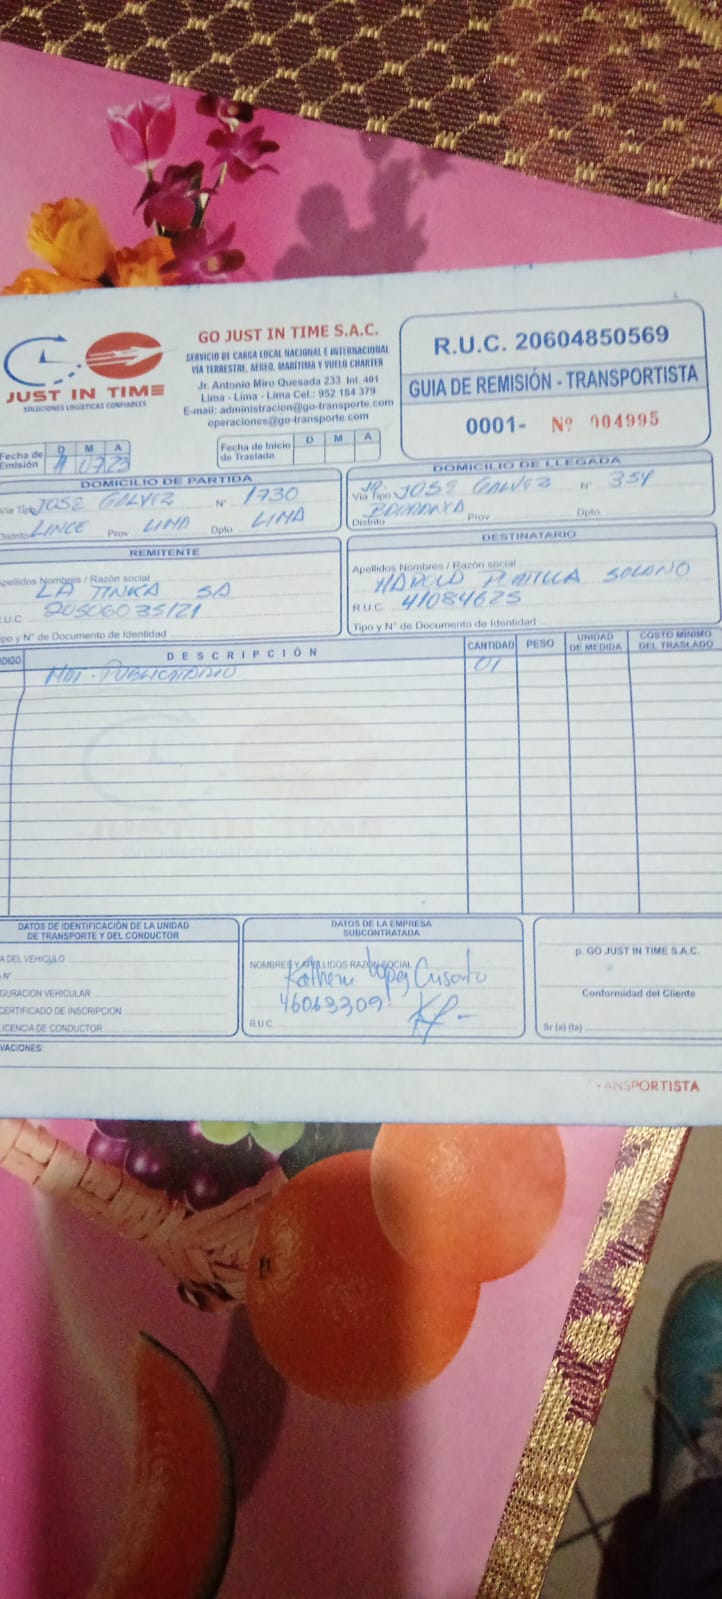 JUST IN TIME
SOLUCIONES LOGÍSTICAS CONFIABLES
GO JUST IN TIME S.A.C.
SERVICIO DE CARGA LOCAL NACIONAL E INTERNACIONAL
VÍA TERRESTRE, AÉREO, MARÍTIMA Y VUELO CHARTER
Jr. Antonio Miro Quesada 233 Int. 401
Lima - Lima - Lima Cel.: 952 184 379
E-mail: administracion@go-transporte.com
operaciones@go-transporte.com
R.U.C. 20604850569
GUIA DE REMISIÓN - TRANSPORTISTA
0001- Nº 004995
Fecha de Emisión D M A 11 07 23
Fecha de Inicio de Traslado D M A
DOMICILIO DE PARTIDA
Vía Tipo JOSE GALVEZ Nº 1730
Distrito LINCE Prov LIMA Dpto. LIMA
DOMICILIO DE LLEGADA
Vía Tipo JR. JOSE GALVEZ Nº 354
Distrito BARRANCA Prov Dpto.
REMITENTE
Apellidos Nombres / Razón social
LA TINKA SA
R.U.C. 20506035121
Tipo y N° de Documento de Identidad
DESTINATARIO
Apellidos Nombres / Razón social
HAROLD PORTILLA SOLANO
R.U.C. 41084625
Tipo y N° de Documento de Identidad
DIGO DESCRIPCIÓN CANTIDAD PESO UNIDAD DE MEDIDA COSTO MÍNIMO DEL TRASLADO
MAT. PUBLICITARIO 01
DATOS DE IDENTIFICACIÓN DE LA UNIDAD
DE TRANSPORTE Y DEL CONDUCTOR
A DEL VEHICULO
N°
GURACION VEHICULAR
CERTIFICADO DE INSCRIPCION
LICENCIA DE CONDUCTOR
DATOS DE LA EMPRESA
SUBCONTRATADA
NOMBRES Y APELLIDOS RAZÓN SOCIAL
Katherin Lopez Crisanto
46063309
R.U.C.
p. GO JUST IN TIME S.A.C.
Conformidad del Cliente
Sr (a) (ta)
VACIONES:
TRANSPORTISTA